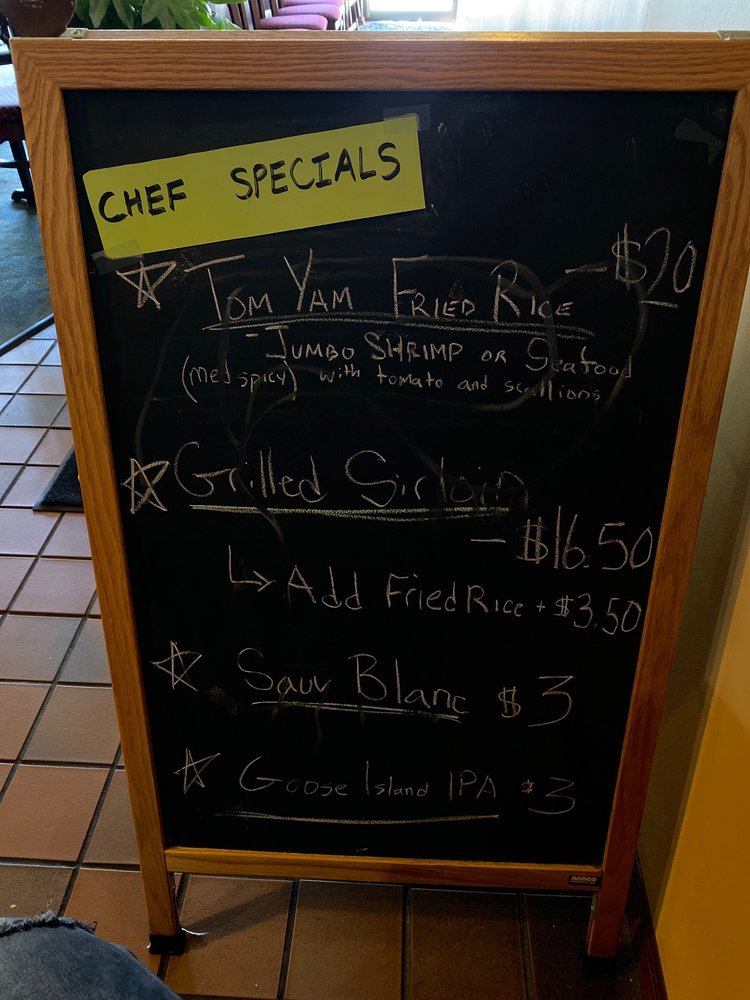 CHEF SPECIALS
TOM YAM FRIED RICE - $20
- JUMBO SHRIMP OR Seafood
(med spicy) with tomato and scallions
Grilled Sirloin
- $16.50
↳ Add Fried Rice + $3.50
Sauv Blanc $3
Goose Island IPA $3
AARCO